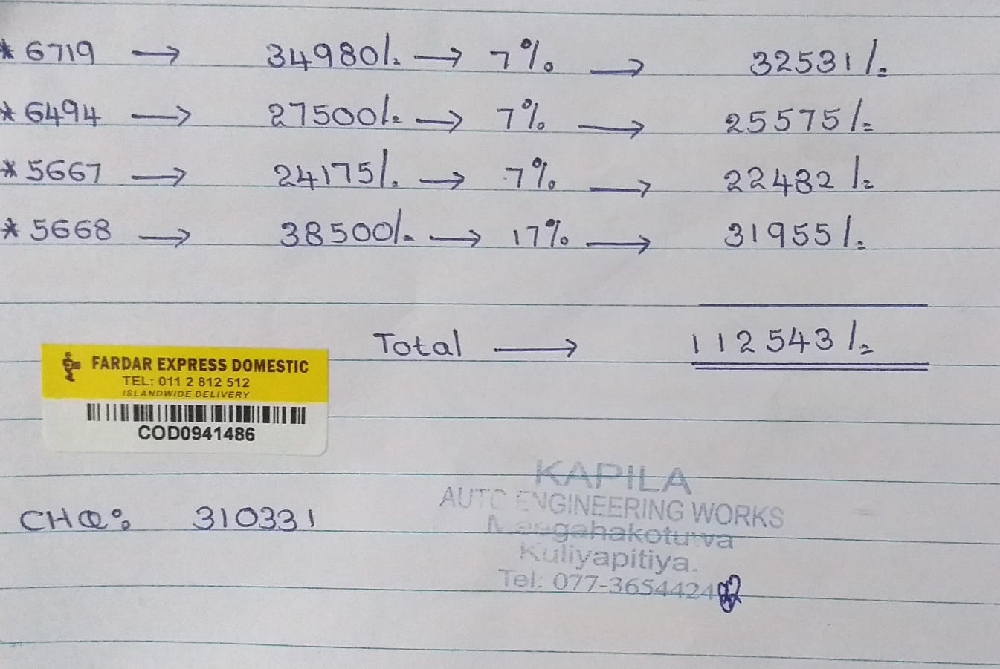 * 6719 → 34980/. → 7% → 32531/=
* 6494 → 27500/= → 7% → 25575/=
* 5667 → 24175/. → 7% → 22482/=
* 5668 → 38500/= → 17% → 31955/=
Total → 112543/=
FARDAR EXPRESS DOMESTIC
TEL: 011 2 812 512
ISLANDWIDE DELIVERY
COD0941486
CHQ: 310331
KAPILA
AUTO ENGINEERING WORKS
Kuliyapitiya.
Tel: 077-365442